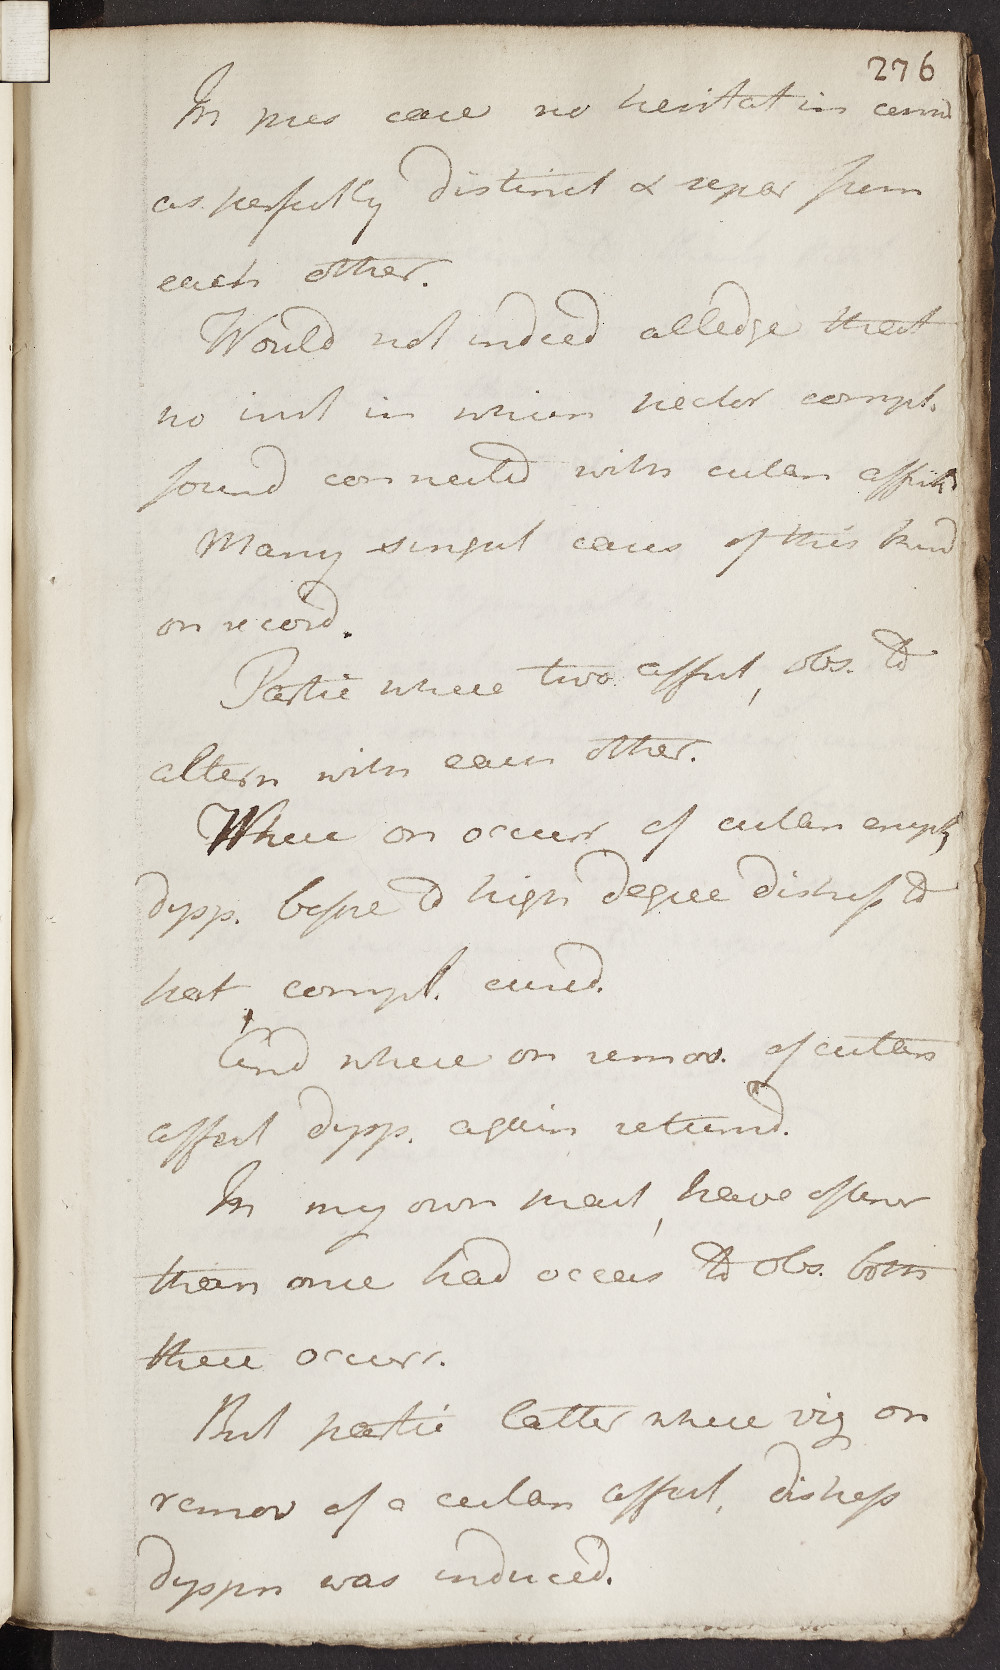 276
In pres case no hesitat in consid
as perfectly distinct & separ from
each other.
Would not indeed alledge that
no inst in which hector compl.
found connected with cutan affect
Many singul cases of this kind
on record.
Partic where two affect, obs. to
altern with each other.
Where on occurr of cutan erupt,
dysp. before to high degree distress to
hect compl. cured.
And where on remov. of cutan
affect dysp. again returnd.
In my own pract, have oftener
than once had occas to obs. both
these occurr.
But partic latter where viz on
remov of a cutan affect, distress
dyspn was induced.